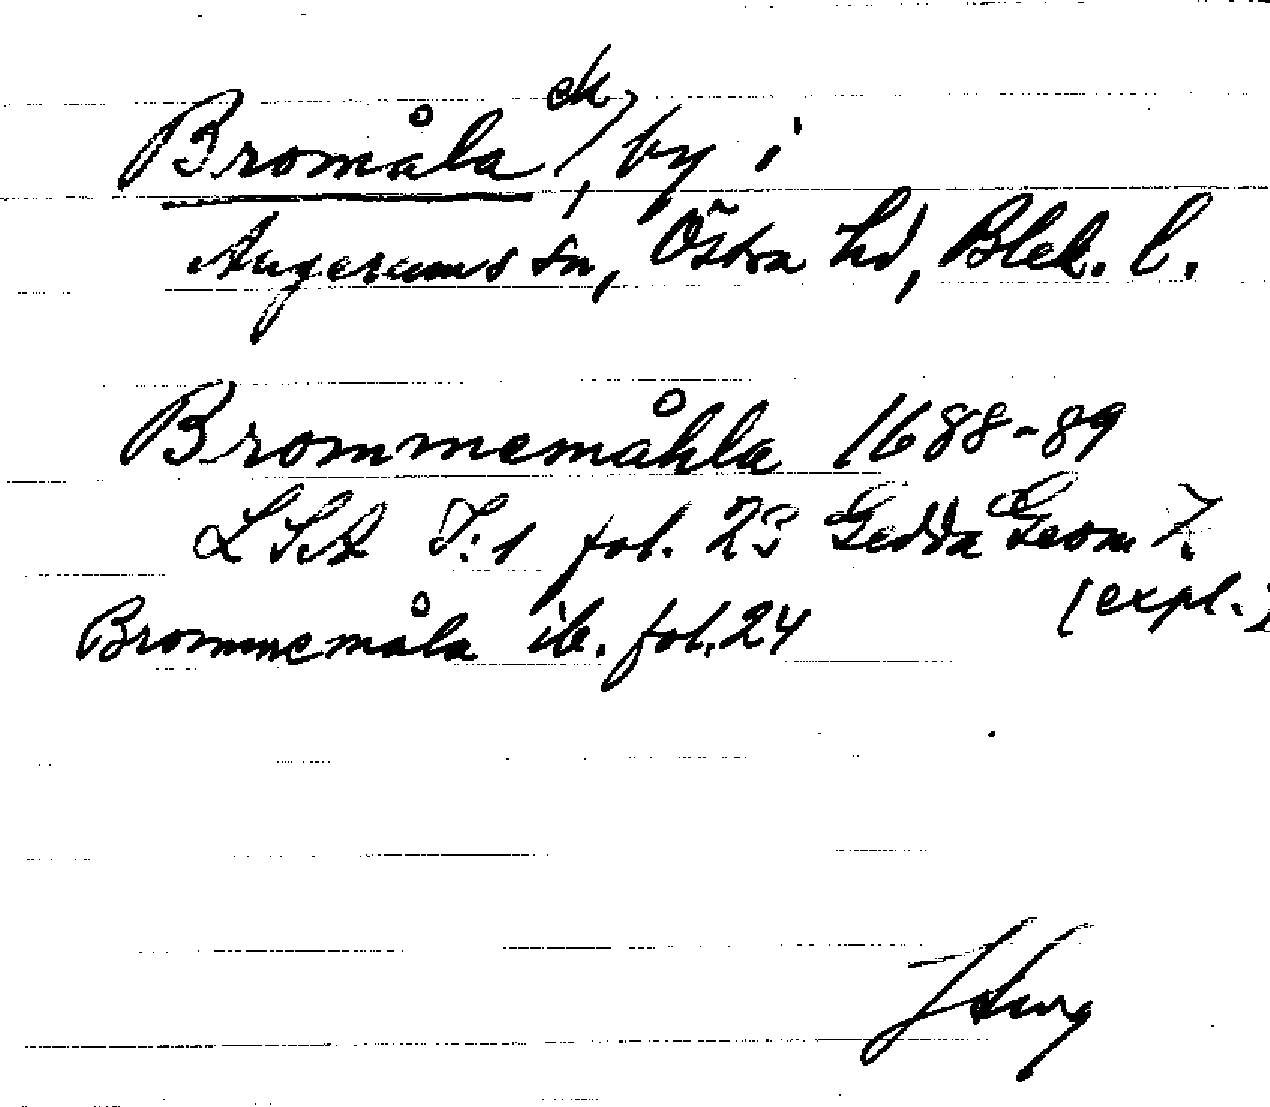 Bromåla ek, by i
Augerums sn, Östra hd, Blek. l.
Brommemåhla 1688-89
LSA I:1 fol. 23 Gedda Geom 7.
(expl.)
Brommemåla ib. fol. 24